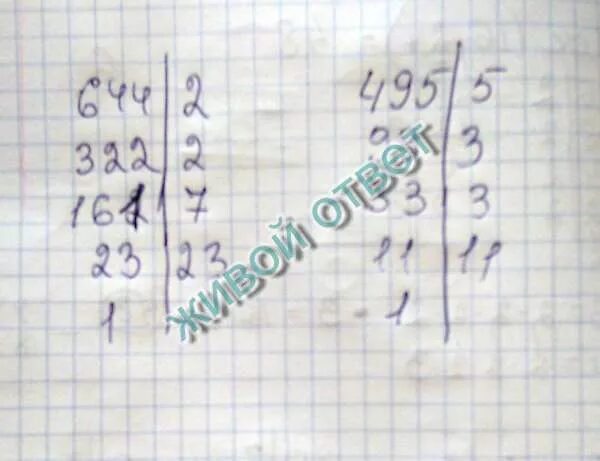 644 | 2
322 | 2
161 | 7
23 | 23
1
495 | 5
3
33 | 3
11 | 11
1
ЖИВОЙ ОТВЕТ